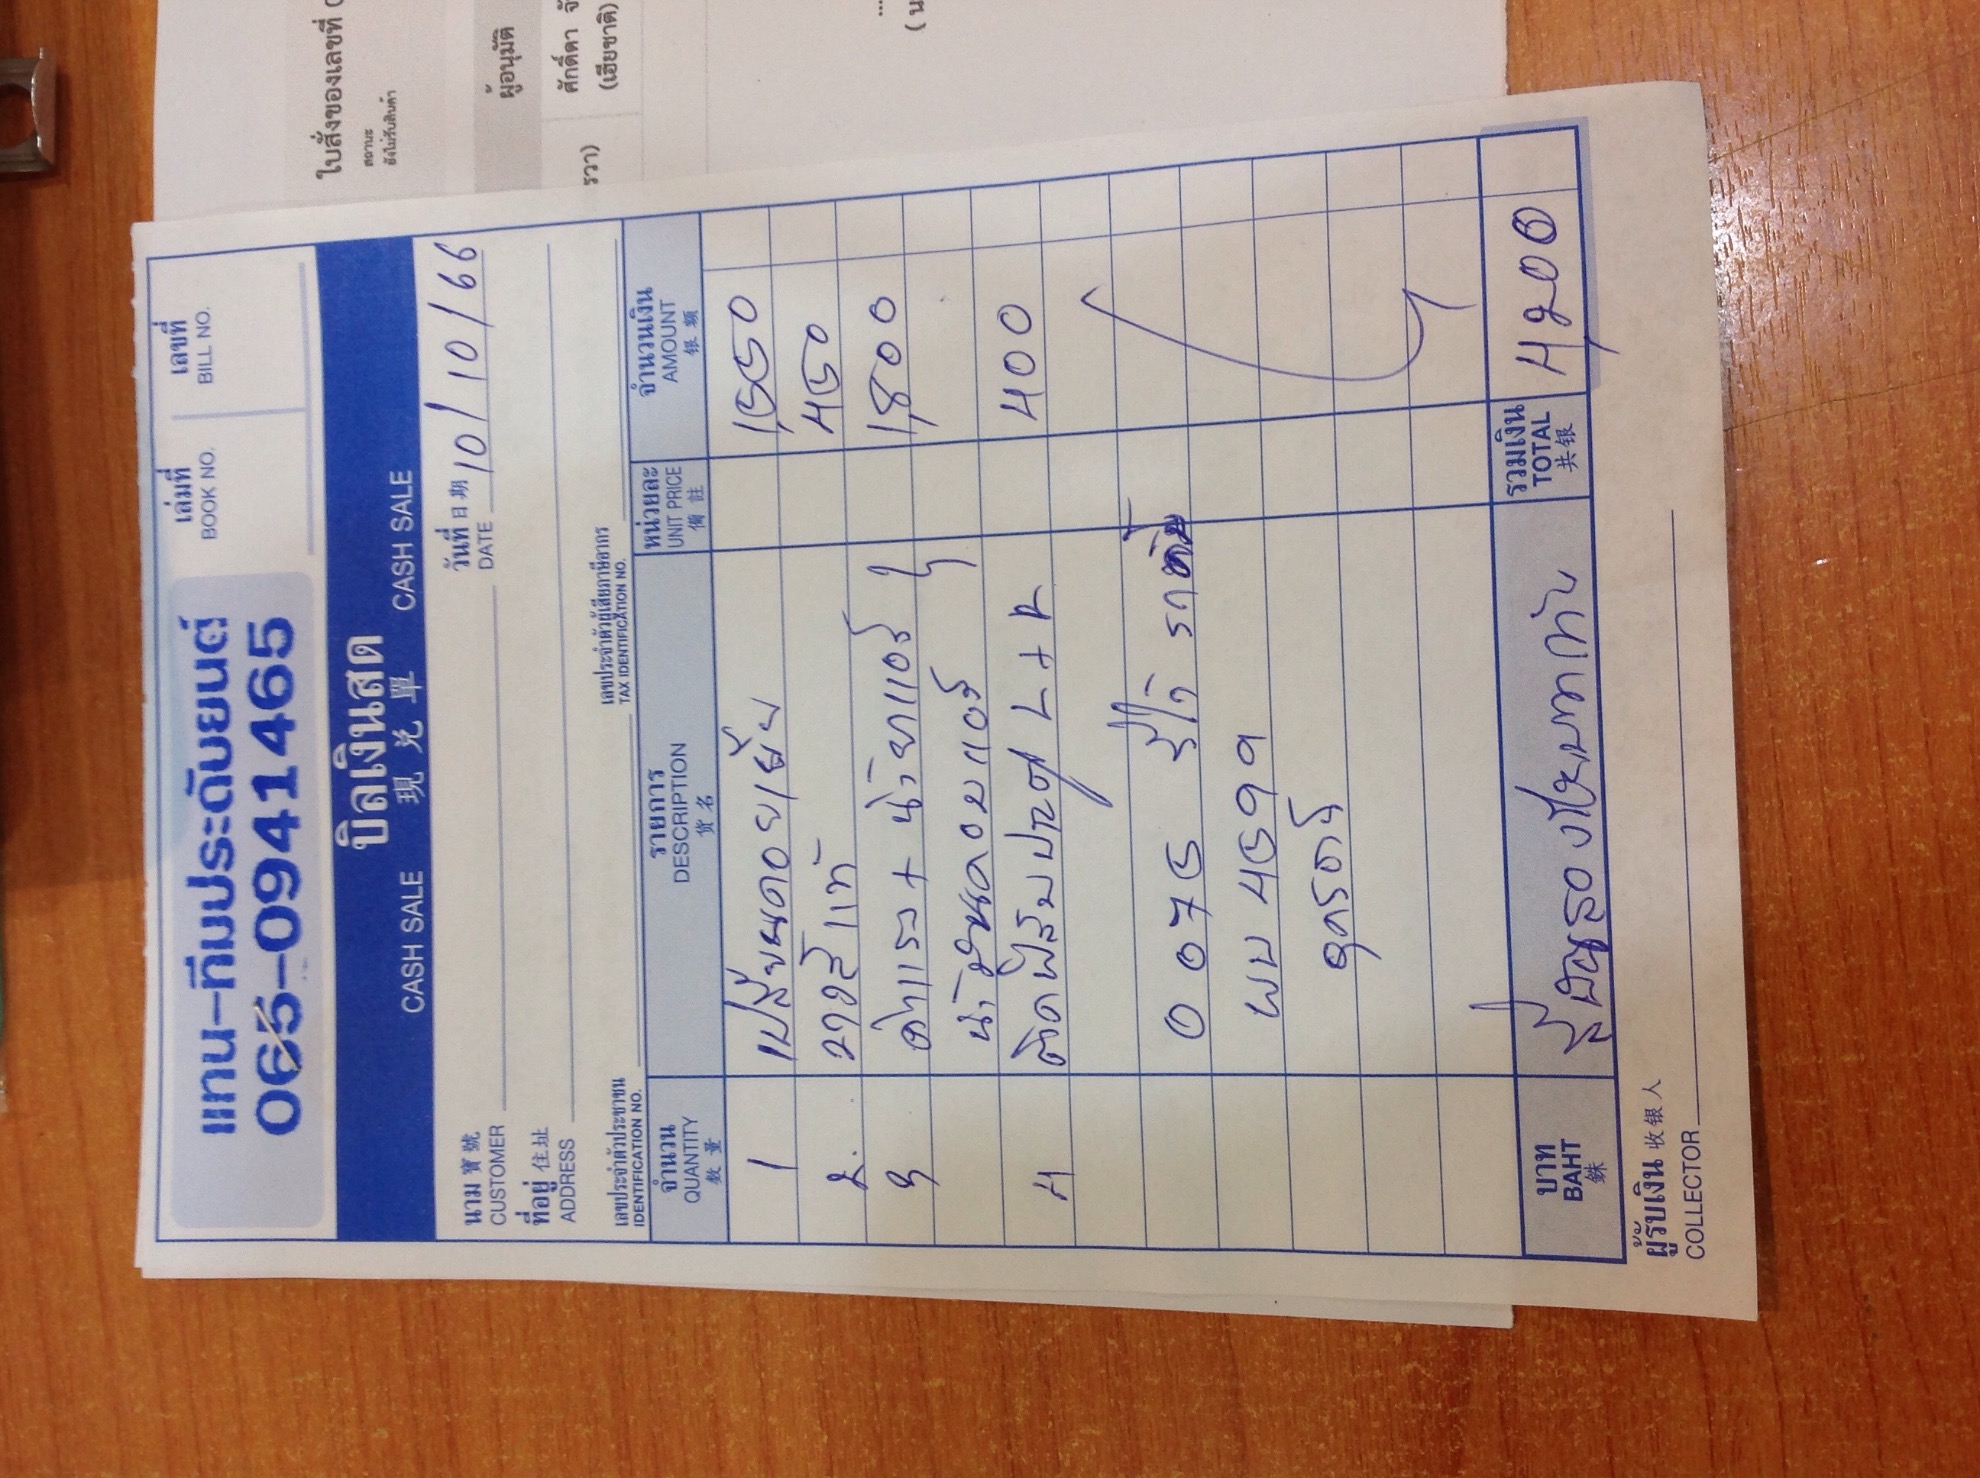 ใบสั่งของเลขที่
สถานะ
ยังไม่รับสินค้า
ผู้อนุมัติ
ศักดิ์ดา
(เฮียชาติ)
รวา)
( น
แทน-ทีมประดับยนต์
065-0941465
เล่มที่
BOOK NO.
เลขที่
BILL NO.
บิลเงินสด
CASH SALE 現兑單 CASH SALE
วันที่ 日期
DATE 10/10/66
นาม 寶號
CUSTOMER
ที่อยู่ 住址
ADDRESS
เลขประจำตัวประชาชน
IDENTIFICATION NO.
เลขประจำตัวผู้เสียภาษีอากร
TAX IDENTIFICATION NO.
จำนวน รายการ หน่วยละ จำนวนเงิน
QUANTITY DESCRIPTION UNIT PRICE AMOUNT
數量 货名 備註 银额
1 เปลี่ยนคอยเย็น 1,550
2. วาล์วแท้ 450
3 ค่าแรง + น้ำยาแอร์ 1,800
น้ำมันคอมแอร์
4 ติดฟิล์มประตู L + R 400
0075
ผบ 4599
อุดรธานี
บาท
BAHT
銖
รวมเงิน
TOTAL
共银
4,200
ผู้รับเงิน 收银人
COLLECTOR